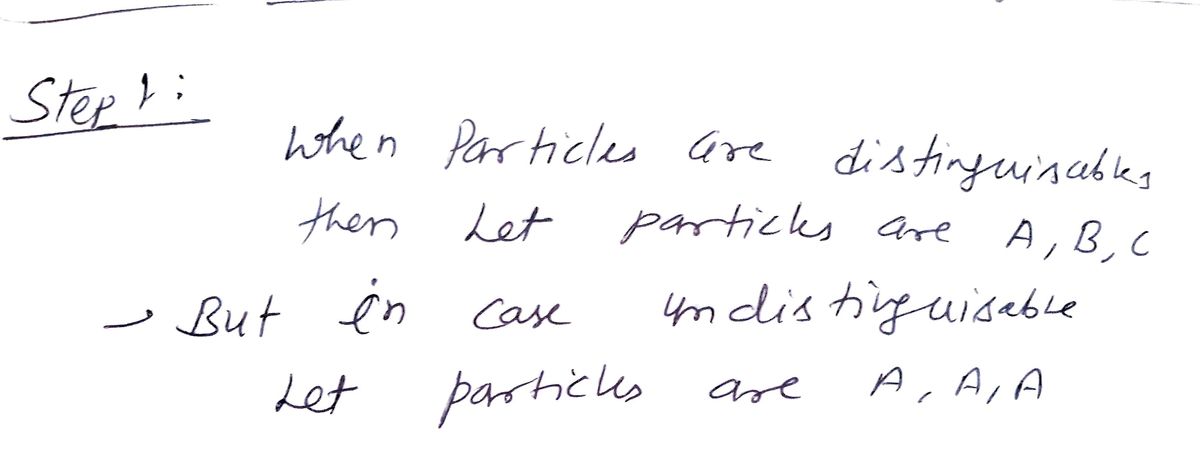 Step 1:
When Particles are distinguisables
then Let particles are A, B, C
→ But in case undistinguisable
Let particles are A, A, A